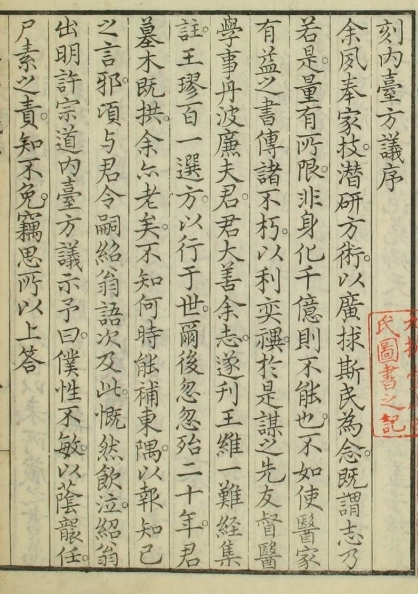 刻内臺方議序
余夙奉家技。潜研方術。以廣救斯民為念。既謂志乃
若是。量有所限。非身化千億則不能也。不如使醫家
有益之書傳諸不朽。以利奕禩。於是謀之先友督醫
學事丹波廉夫君。君大善余志。遂刊王維一難経集
註王璆百一選方。以行于世。爾後忽忽殆二十年。君
墓木既拱。余亦老矣。不知何時能補東隅。以報知己
之言邪。頃与君令嗣紹翁語次及此。慨然飲泣。紹翁
出明許宗道内臺方議示予曰。僕性不敏。以蔭襲任。
尸素之責。知不免。竊思所以上答
氏圖書之記